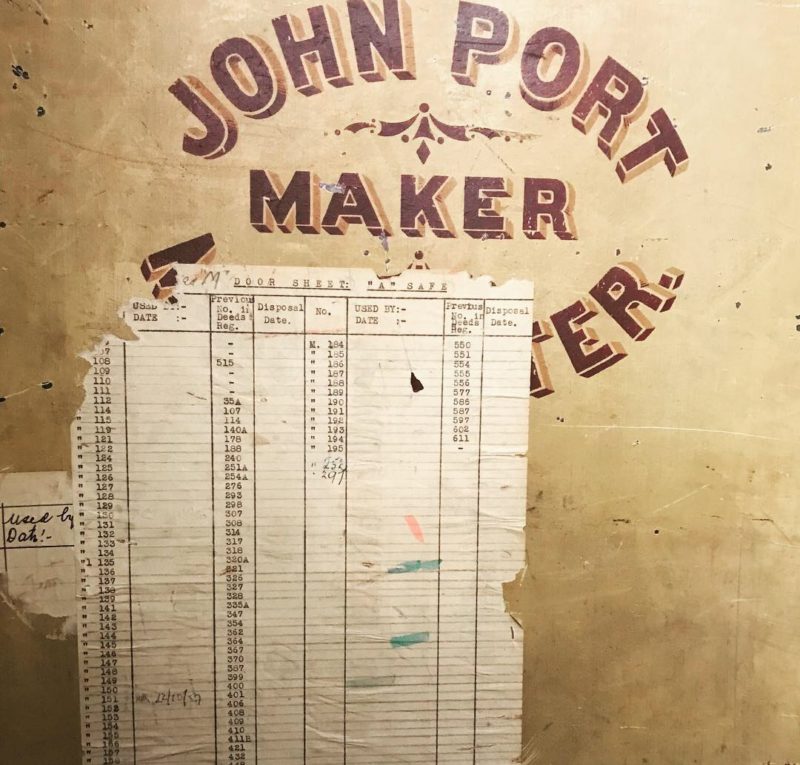 JOHN PORT
MAKER
TER.
"M" DOOR SHEET: "A" SAFE
USED BY:- Previous No. in Deeds Reg. Disposal Date. No. USED BY:- Previous No. in Deeds Reg. Disposal Date.
DATE :- DATE :-
- M. 184 550
- " 185 551
108 515 " 186 554
109 - " 187 555
110 - " 188 556
111 - " 189 577
" 112 35A " 190 586
" 114 107 " 191 587
" 115 114 " 192 597
" 119 140A " 193 602
" 121 178 " 194 611
" 122 188 " 195 -
" 124 240
" 125 251A " 252
" 126 254A " 297
" 127 276
" 128 293
" 129 298
" 130 307
" 131 308
" 132 314
" 133 317
" 134 318
" 135 320A
" 136 321
" 137 326
" 138 327
" 139 328
" 141 335A
" 142 347
" 143 354
" 144 362
" 145 364
" 146 367
" 147 370
" 148 387
" 149 399
" 150 400
" 151 401
" 152 406
" 153 408
" 154 409
" 155 410
" 156 411B
" 157 421
" 158 432
Used by
Date:-